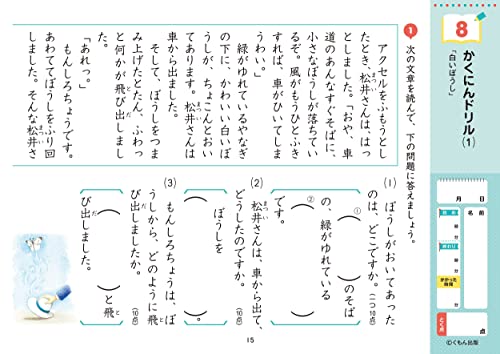 8
かくにんドリル(1)
「白いぼうし」
月 日
名前
始め 時 分
終わり 時 分
かかった時間 分
とく点 点
©くもん出版
1 次の文章を読んで、下の問題に答えましょう。
アクセルをふもうとし
たとき、松井さんは、はっ
としました。「おや、車
道のあんなすぐそばに、
小さなぼうしが落ちてい
るぞ。風がもうひとふき
すれば、車がひいてしま
うわい。」
緑がゆれているやなぎ
の下に、かわいい白いぼ
うしが、ちょこんとおい
てあります。松井さんは
車から出ました。
そして、ぼうしをつま
み上げたとたん、ふわっ
と何かが飛び出しまし
た。
「あれっ。」
もんしろちょうです。
あわててぼうしをふり回
しました。そんな松井さ
(1) ぼうしがおいてあった
のは、どこですか。(一つ10点)
①( )のそば
の、緑がゆれている
②( )
です。
(2) 松井さんは、車から出て、
どうしたのですか。(10点)
ぼうしを
( )
(3) もんしろちょうは、ぼ
うしから、どのように飛
び出しましたか。(10点)
( )と飛
び出しました。
15